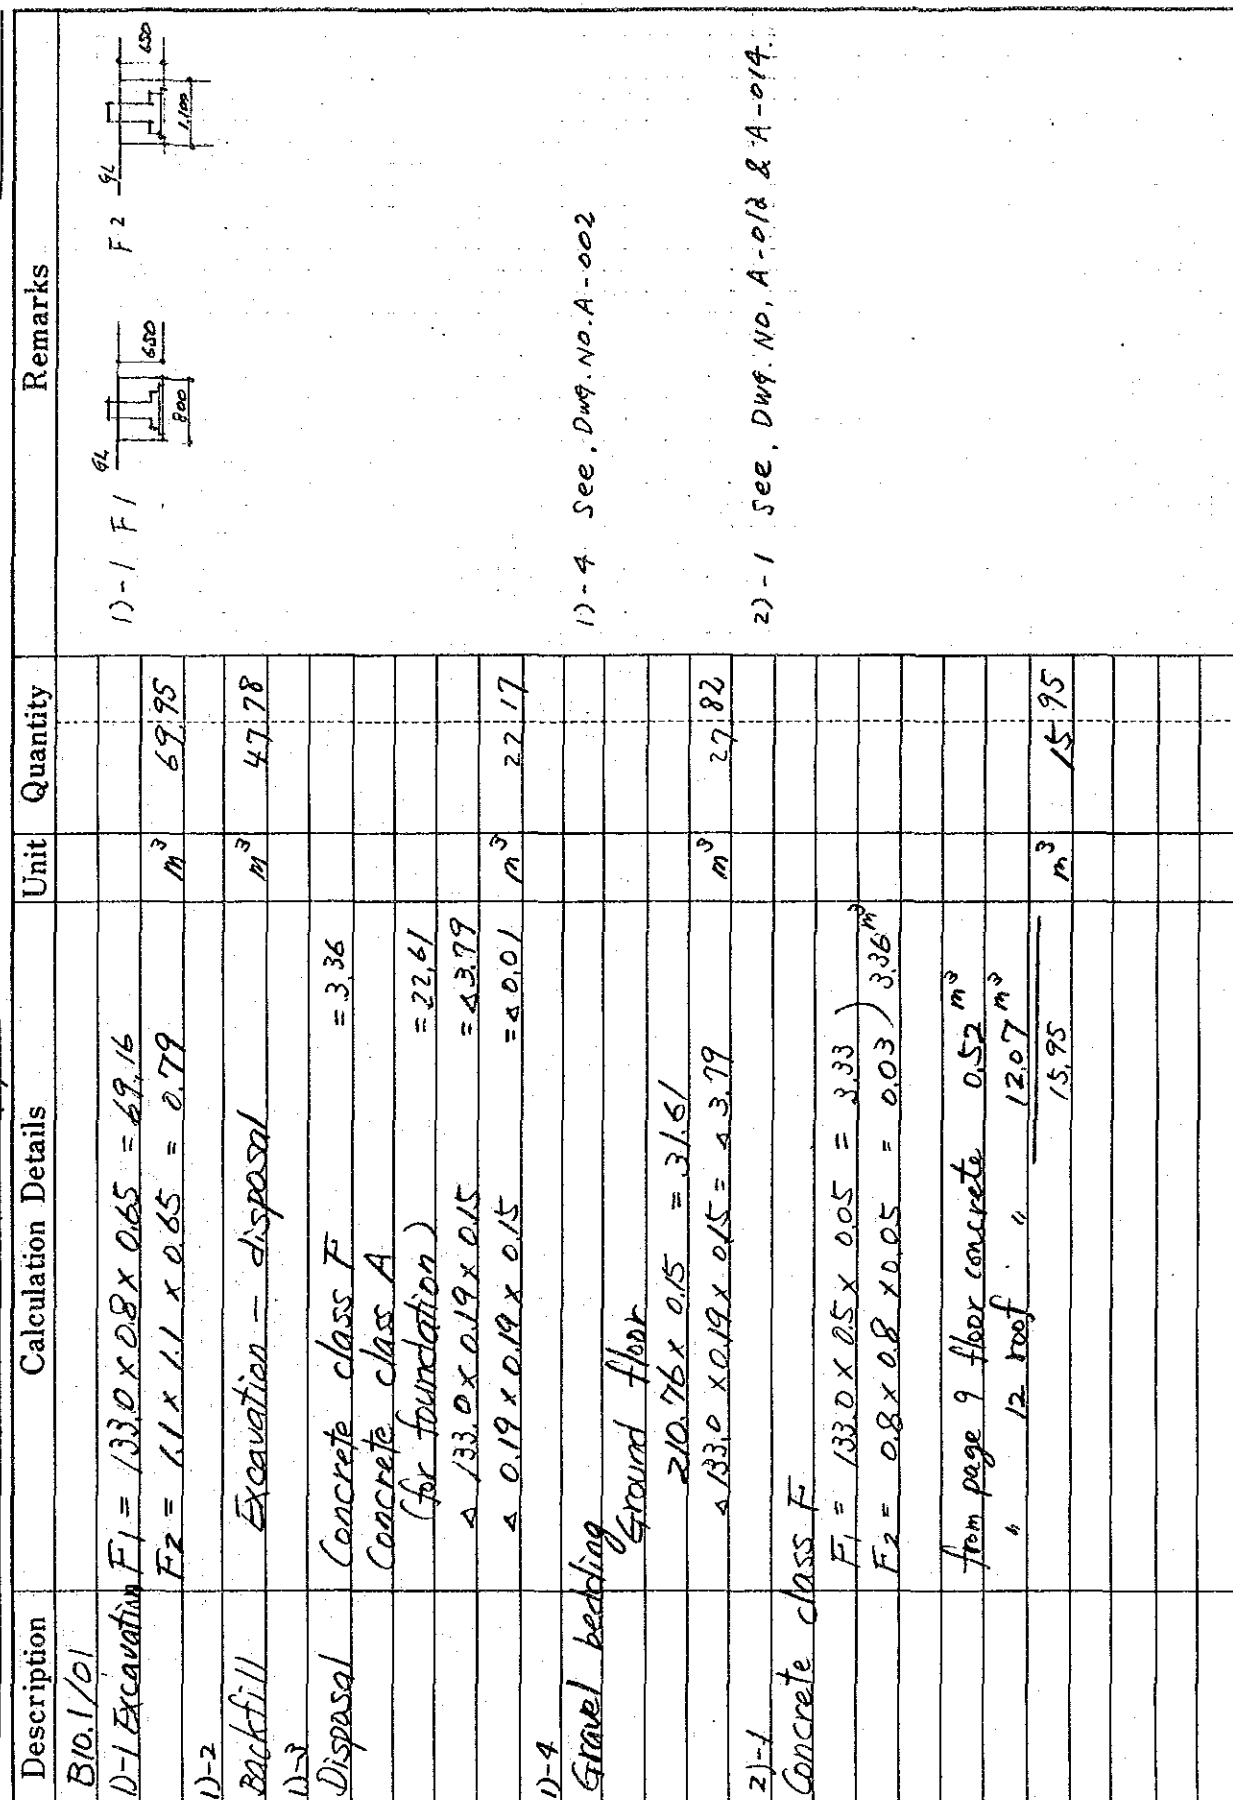 Description Calculation Details Unit Quantity Remarks
B10.1/01
1)-1 Excavation F1 = 133.0 x 0.8 x 0.65 = 69.16
F2 = 1.1 x 1.1 x 0.65 = 0.79 m³ 69.95
1)-1 F1 GL 650 800 F2 GL 650 1,100
1)-2
Backfill Excavation - disposal m³ 47.78
1)-3
Disposal Concrete class F = 3.36
Concrete class A
(for foundation) = 22.61
Δ 133.0 x 0.19 x 0.15 = Δ 3.79
Δ 0.19 x 0.19 x 0.15 = Δ 0.01 m³ 22.17
1)-4
Gravel bedding 1)-4 See. Dwg. No. A-002
Ground floor
210.76 x 0.15 = 31.61
Δ 133.0 x 0.19 x 0.15 = Δ 3.79 m³ 27.82
2)-1 2)-1 See. Dwg. No. A-012 & A-014.
Concrete class F
F1 = 133.0 x 0.5 x 0.05 = 3.33 )
F2 = 0.8 x 0.8 x 0.05 = 0.03 ) 3.36 m³
from page 9 floor concrete 0.52 m³
" 12 roof " 12.07 m³
15.95 m³ 15.95